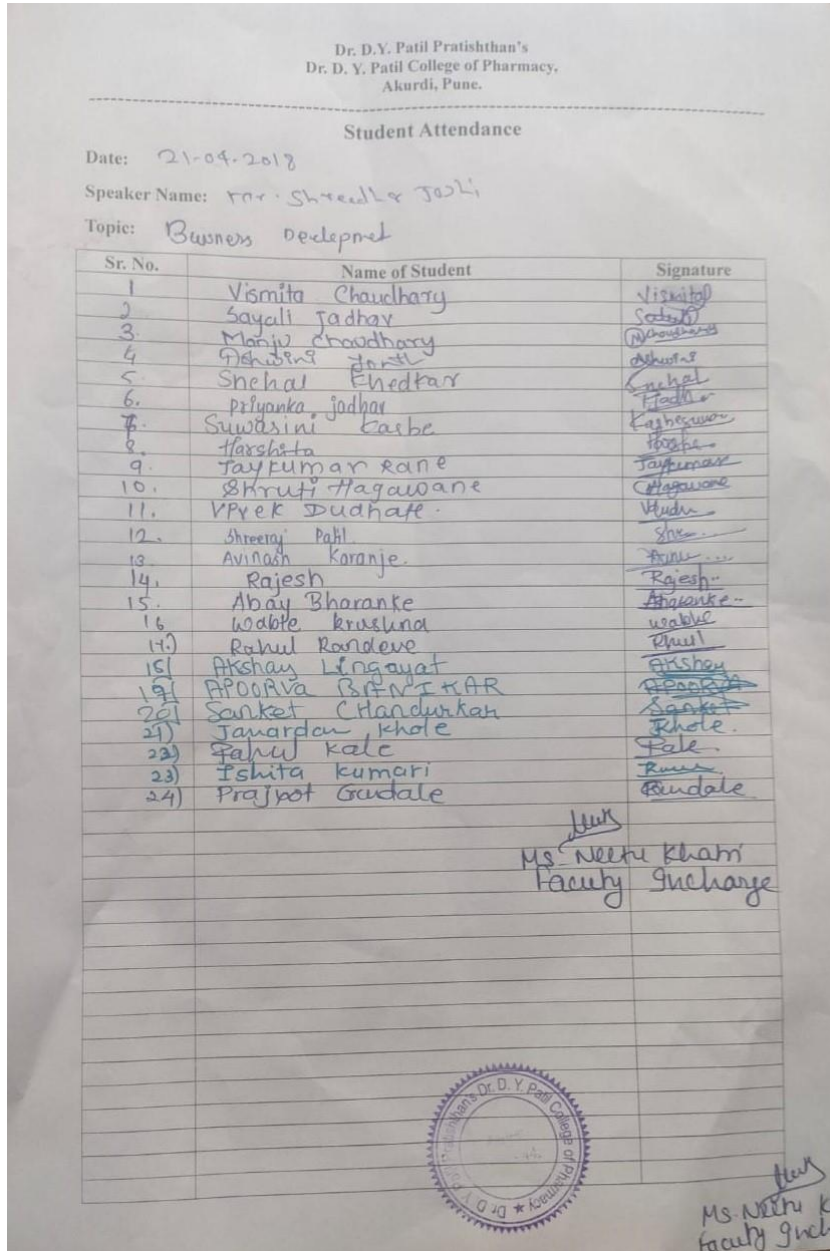 Dr. D.Y. Patil Pratishthan's
Dr. D. Y. Patil College of Pharmacy,
Akurdi, Pune.
Student Attendance
Date: 21-04-2018
Speaker Name: Joshi
Topic: Busness
Sr. No. Name of Student Signature
1 Vismita Chaudhary Vismita
2 Sayali Jadhav
3. Manju Choudhary MChoudhary
4 Ashwini Ashwini
5. Snehal Khedkar Snehal
6. Priyanka jadhav
7. Suwasini Kasbe
8. Harshita
9. Jaykumar Rane Jaykumar
10. Shruti Hagawane Hagawane
11. Vivek Dudhate.
12. Shreeraj Patil
13. Avinash Karanje.
14. Rajesh Rajesh
15. Abay Bharanke
16 Wable krushna wable
17.) Rahul Randeve
18) Akshay Lingayat Akshay
19) APOORVA APOORVA
20) Sanket CHandurkar Sanket
21) Janardan Khole Khole.
22) Rahul Kale Kale.
23) Ishita Kumari
24) Prajyot Gundale Gundale
Ms. Neetu Khatri
Facuty Incharge
Dr. D. Y. Patil Pratishthan's Dr. D. Y. Patil College of Pharmacy
Ms. Neetu K
Facuty Inch